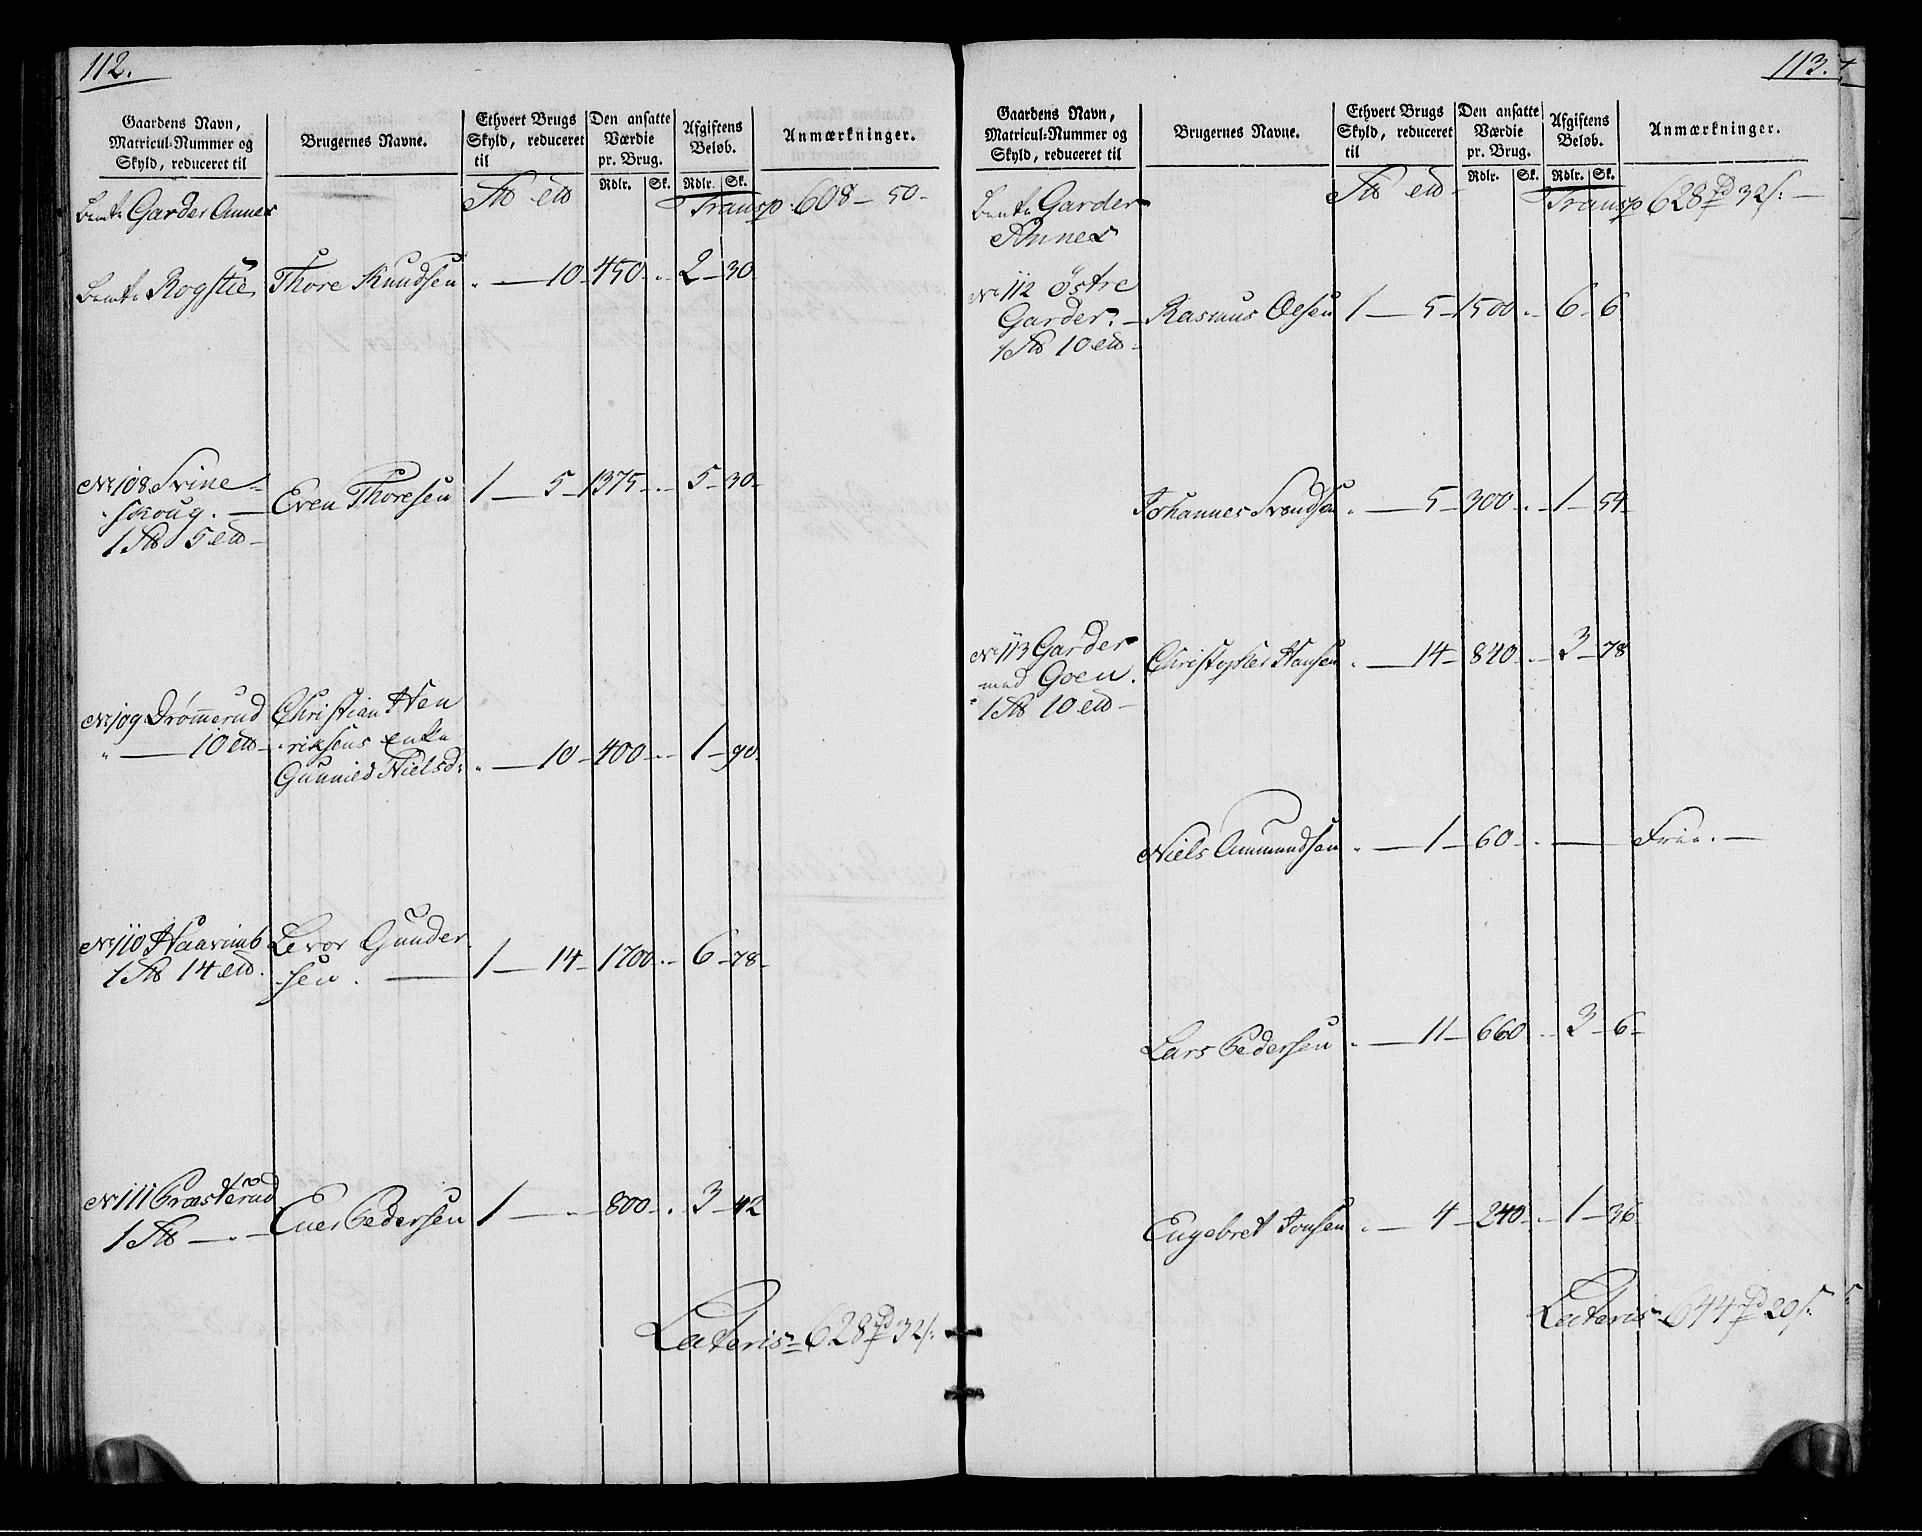 112.
Gaardens Navn, Matricul-Nummer og Skyld, reduceret til
Brugernes Navne.
Ethvert Brugs Skyld, reduceret til
Den ansatte Værdie pr. Brug.
Afgiftens Beløb.
Anmærkninger.
Rdlr. Sk. Rdlr. Sk.
Garder Annex
Transp: 608 – 50 –
Rogstie Thore Knudsen „ — 10 – 450 – „ – 2 – 30 –
No 108 Svine-
skoug. — Even Thoresen 1 — 5 – 1375 – „ – 5 – 30 –
1 5
No 109 Drømmerud Christian Hen
„ — 10 riksens enke
Gunnild Nielsd: „ — 10 – 400 – „ – 1 – 90 –
No 110 Haarimb Levor Gunder
1 14 sen. — 1 — 14 – 1700 – „ – 6 – 78 –
No 111 Præsterud
1 — „ — Pedersen 1 — „ – 800 – „ – 3 – 42
Lateris – 628 rd 32 s:
113.
Gaardens Navn, Matricul-Nummer og Skyld, reduceret til
Brugernes Navne.
Ethvert Brugs Skyld, reduceret til
Den ansatte Værdie pr. Brug.
Afgiftens Beløb.
Anmærkninger.
Rdlr. Sk. Rdlr. Sk.
Garder
Annex
Transp 628 rd 32 s: —
No 112 Østre
Garder. — Rasmus Olsen 1 — 5 – 1500 „ – 6 – 6
1 10
Johannes Svendsen „ — 5 – 300 – „ – 1 – 54
No 113 Garder
med Goen. Christopher Hansen „ — 14 – 840 – „ – 3 – 78
1 10
Niels Ammundsen „ — 1 – 60 – „ — Frie. —
Lars Pedersen „ — 11 – 660 – „ – 3 – 6 –
Engebret Jonsen „ — 4 – 240 – „ – 1 – 36
Lateris – 644 rd 20 s: